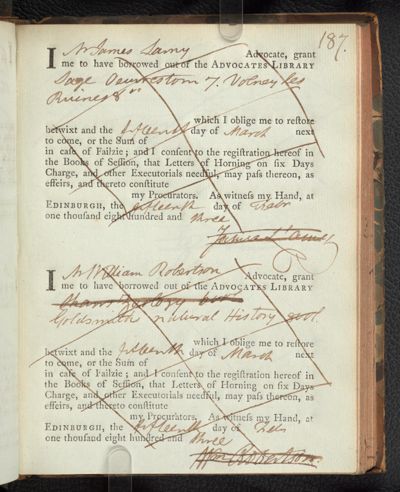 187.
I Mr James Lamy Advocate, grant
me to have borrowed out of the ADVOCATES LIBRARY
7. Volney les
Ruines 8vo
which I oblige me to reſtore
betwixt and the fifteenth day of March next
to come, or the Sum of
in caſe of Failzie; and I conſent to the regiſtration hereof in
the Books of Seſſion, that Letters of Horning on ſix Days
Charge, and other Executorials needful, may paſs thereon, as
effeirs, and thereto conſtitute
my Procurators. As witneſs my Hand, at
EDINBURGH, the fifteenth day of Febr
one thouſand eight hundred and three
James Lamy
I Mr William Robertson Advocate, grant
me to have borrowed out of the ADVOCATES LIBRARY
Goldsmiths natural History
which I oblige me to reſtore
betwixt and the fifteenth day of March next
to come, or the Sum of
in caſe of Failzie; and I conſent to the regiſtration hereof in
the Books of Seſſion, that Letters of Horning on ſix Days
Charge, and other Executorials needful, may paſs thereon, as
effeirs, and thereto conſtitute
my Procurators. As witneſs my Hand, at
EDINBURGH, the fifteenth day of Feb
one thouſand eight hundred and three
Wm Robertson